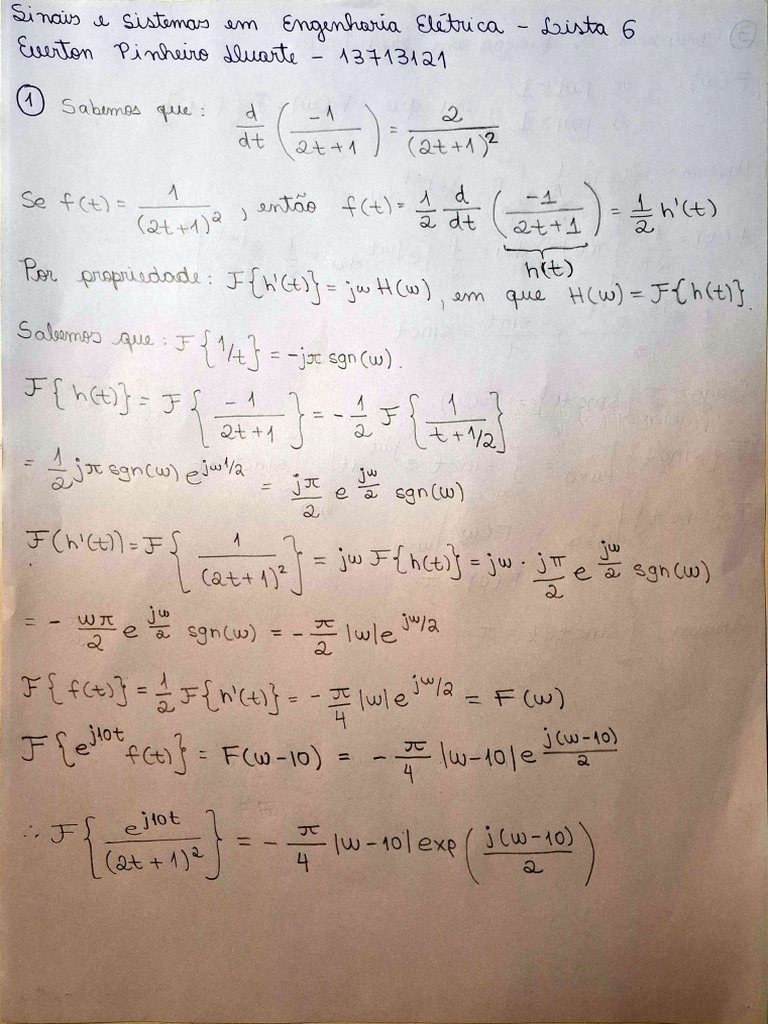 Sinais e Sistemas em Engenharia Elétrica - Lista 6
Everton Pinheiro Duarte - 13713121
① Sabemos que: d/dt (-1/(2t+1)) = 2/(2t+1)²
Se f(t) = 1/(2t+1)², então f(t) = 1/2 d/dt (-1/(2t+1)) = 1/2 h'(t)
h(t)
Por propriedade: F{h'(t)} = jw H(w), em que H(w) = F{h(t)}.
Sabemos que: F{1/t} = -jπ sgn(w).
F{h(t)} = F{-1/(2t+1)} = -1/2 F{1/(t+1/2)}
= 1/2 jπ sgn(w) e^(jw1/2) = jπ/2 e^(jw/2) sgn(w)
F(h'(t)) = F{1/(2t+1)²} = jw F{h(t)} = jw · jπ/2 e^(jw/2) sgn(w)
= - wπ/2 e^(jw/2) sgn(w) = - π/2 |w| e^(jw/2)
F{f(t)} = 1/2 F{h'(t)} = - π/4 |w| e^(jw/2) = F(w)
F{e^(j10t) f(t)} = F(w-10) = - π/4 |w-10| e^(j(w-10)/2)
∴ F{e^(j10t)/(2t+1)²} = - π/4 |w-10| exp(j(w-10)/2)